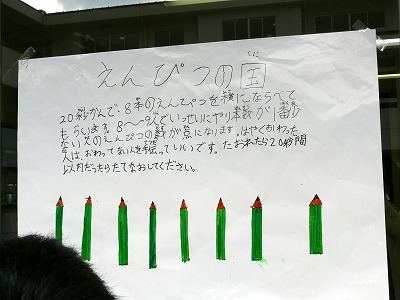 えんぴつの国
くに
20秒かんで、8本のえんぴつを横にならべて
もらいます。8〜9人でいっせいにやり本数が1番少
ない人のえんぴつの数が点になります。はやくおわった
人は、おわってない人を手っていいです。たおれたら20秒間
以内だったらたてなおしてください。